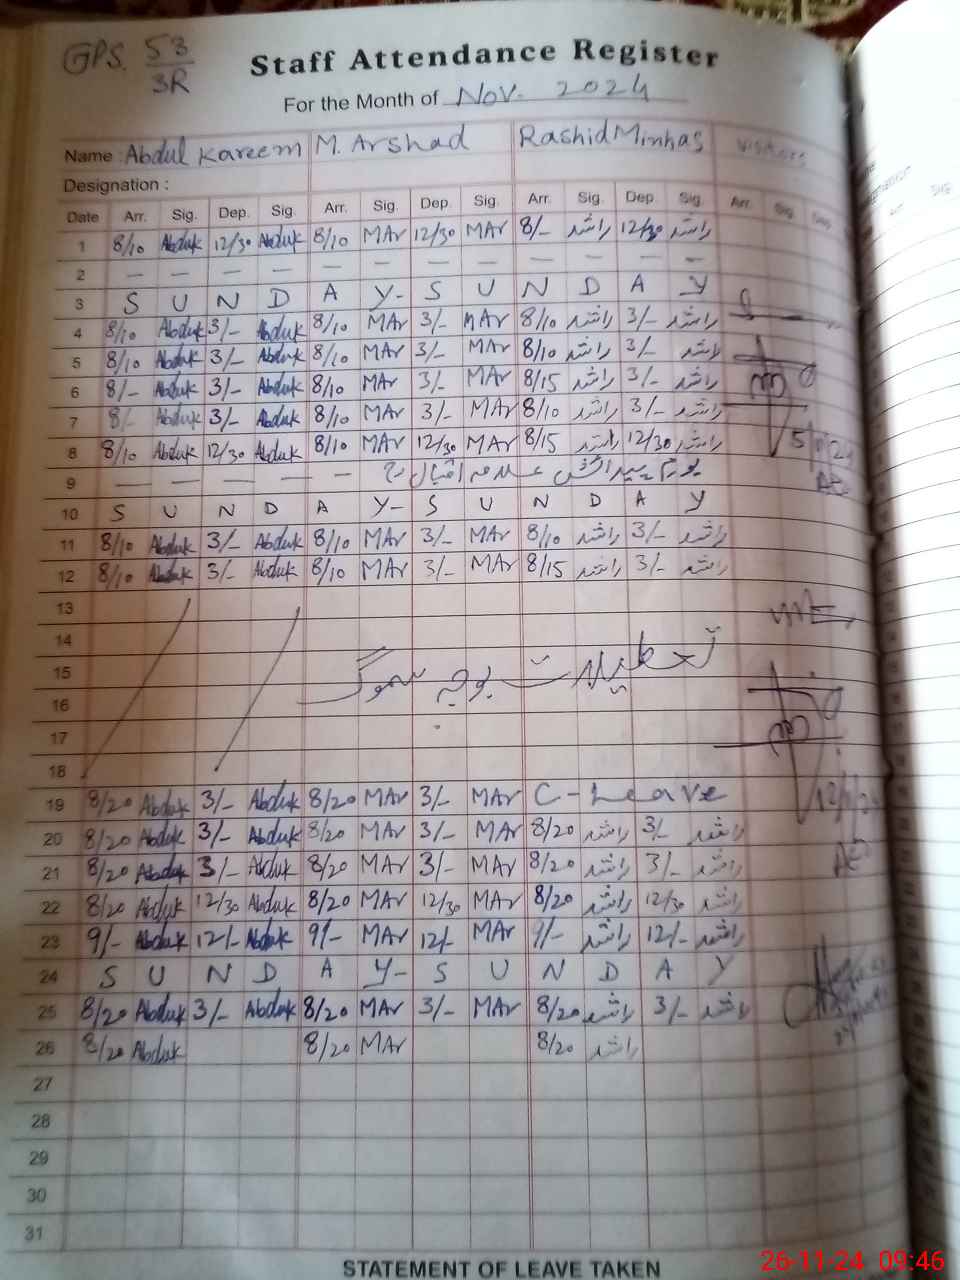 GPS. 53/3R
Staff Attendance Register
For the Month of Nov. 2024
Name : Abdul Kareem M. Arshad Rashid Minhas Visitors
Designation :
Date Arr. Sig. Dep. Sig. Arr. Sig. Dep. Sig. Arr. Sig. Dep. Sig. Arr. Sig.
1 8/10 Abduk 12/30 Abduk 8/10 MAr 12/30 MAr 8/- راشد 12/30 راشد
2 — — — — — — — — — — — —
3 S U N D A Y- S U N D A Y
4 8/10 Abduk 3/- Abduk 8/10 MAr 3/- MAr 8/10 راشد 3/- راشد
5 8/10 Abduk 3/- Abduk 8/10 MAr 3/- MAr 8/10 راشد 3/- راشد
6 8/- Abduk 3/- Abduk 8/10 MAr 3/- MAr 8/15 راشد 3/- راشد
7 8/- Abduk 3/- Abduk 8/10 MAr 3/- MAr 8/10 راشد 3/- راشد
8 8/10 Abduk 12/30 Abduk 8/10 MAr 12/30 MAr 8/15 راشد 12/30 راشد
9 — — — — — یوم پیدائش علامہ اقبال
10 S U N D A Y- S U N D A Y
11 8/10 Abduk 3/- Abduk 8/10 MAr 3/- MAr 8/10 راشد 3/- راشد
12 8/10 Abduk 3/- Abduk 8/10 MAr 3/- MAr 8/15 راشد 3/- راشد
13
14
15 تعطیلات بوجہ سموگ
16
17
18
19 8/20 Abduk 3/- Abduk 8/20 MAr 3/- MAr C-Leave
20 8/20 Abduk 3/- Abduk 8/20 MAr 3/- MAr 8/20 راشد 3/- راشد
21 8/20 Abduk 3/- Abduk 8/20 MAr 3/- MAr 8/20 راشد 3/- راشد
22 8/20 Abduk 12/30 Abduk 8/20 MAr 12/30 MAr 8/20 راشد 12/30 راشد
23 9/- Abduk 12/- Abduk 9/- MAr 12/- MAr 9/- راشد 12/- راشد
24 S U N D A Y- S U N D A Y
25 8/20 Abduk 3/- Abduk 8/20 MAr 3/- MAr 8/20 راشد 3/- راشد
26 8/20 Abduk 8/20 MAr 8/20 راشد
27
28
29
30
31
STATEMENT OF LEAVE TAKEN
26-11-24 09:46